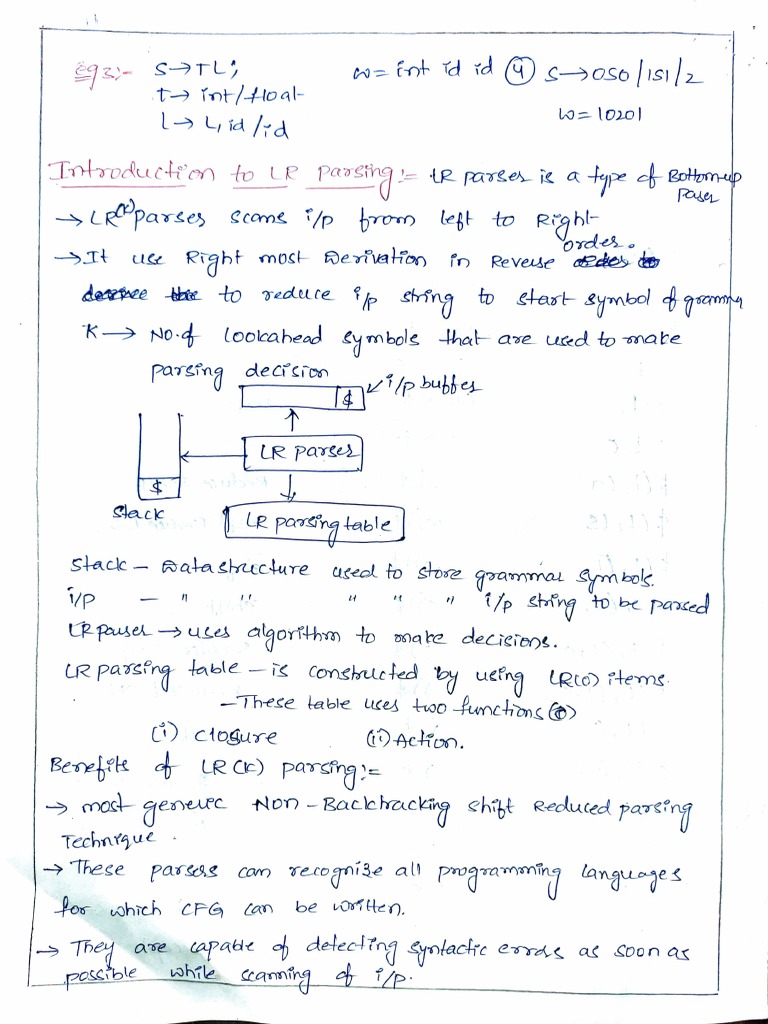 Eg 3:- S→TL; w= int id id ④ S→0S0/1S1/2
t→ int/float w=10201
L→ L,id/id
Introduction to LR Parsing:= LR parser is a type of Bottom-up
Paser
→ LR(K) parser scans i/p from left to Right
order.
→It use Right most Derivation in Reverse
to reduce i/p string to start symbol of grammar
K → No.of lookahead symbols that are used to make
parsing decision
$ i/p buffer
LR parser
$
Stack
LR parsing table
Stack – Datastructure used to store grammar symbols.
i/p – " " " " " i/p string to be parsed
LR parser → uses algorithm to make decisions.
LR parsing table – is constructed by using LR(0) items.
– These table uses two functions
(i) closure (ii) Action.
Benefits of LR(K) parsing:=
→ most generic Non-Backtracking shift Reduced parsing
Technique.
→ These parsers can recognize all programming languages
for which CFG can be written.
→ They are capable of detecting syntactic errors as soon as
possible while scanning of i/p.